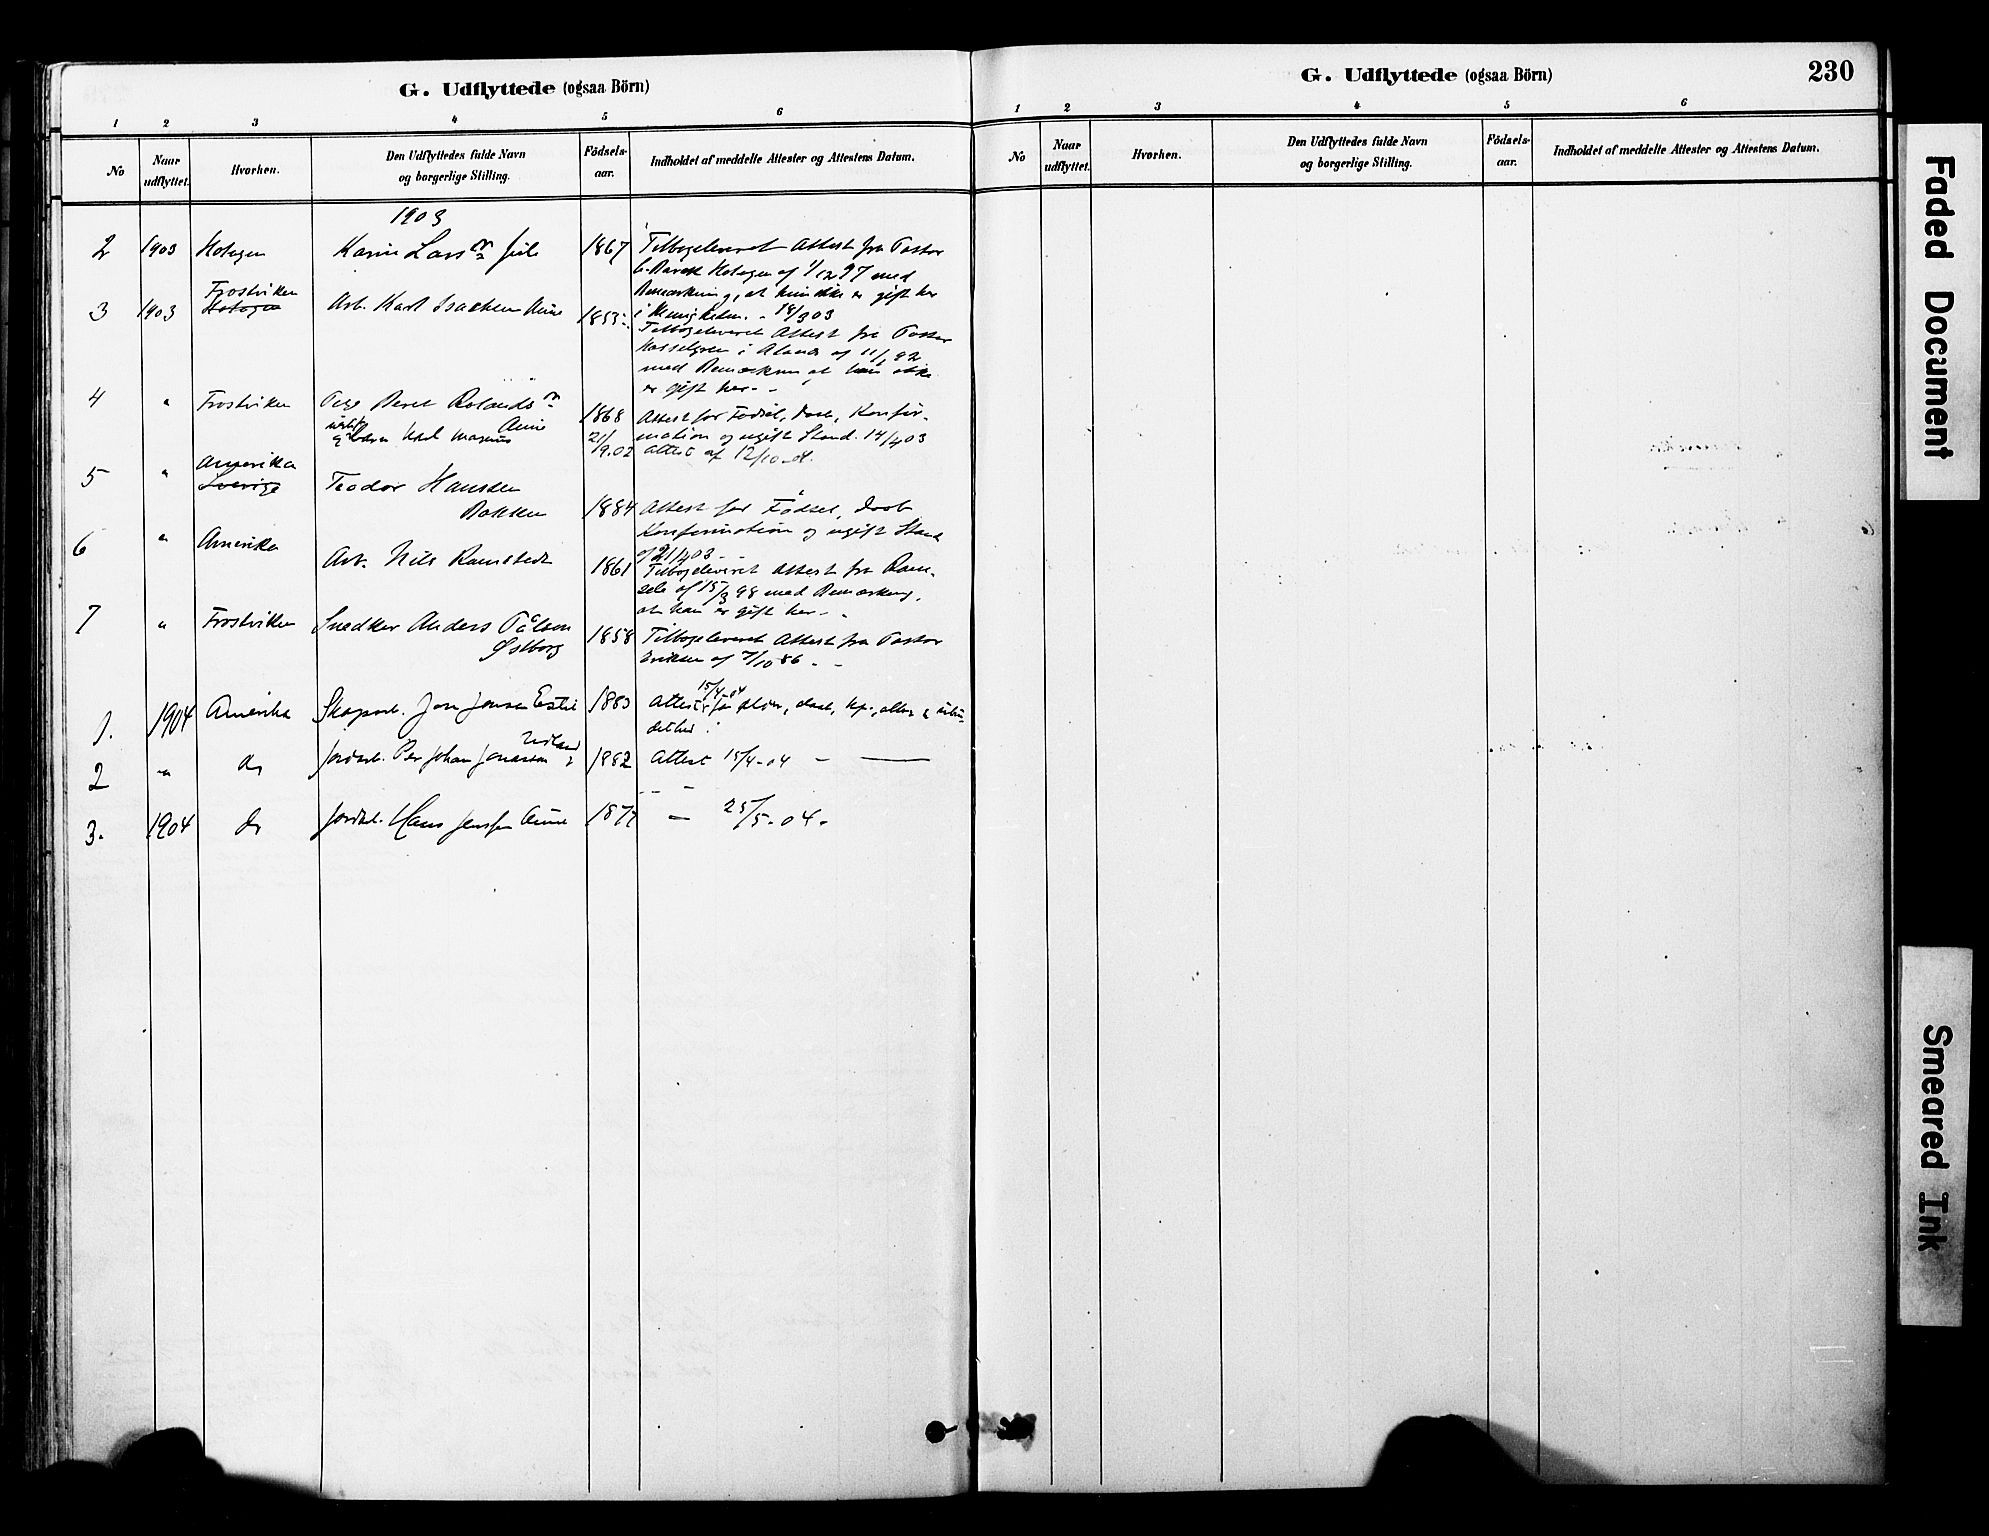 G. Udflyttede (ogsaa Börn)
1 2 3 4 5 6
No
Naar udflyttet.
Hvorhen.
Den Udflyttedes fulde Navn
og borgerlige Stilling.
Födsels-
aar.
Indholdet af meddelte Attester og Attestens Datum.
1903
2 1903 Hotagen Karin Lars 1867 Tilbageleveret Attest fra Pastor
Hotagen af 1/12 97 med
Bemærkning, at hun ikke er gift her
i Menigheden. - 18/3 03
3 1903 Frostviken
Hotagen
Arb. Karl Isaksen 1853
Tilbageleveret Attest fra Pastor
Hasselgren i Alanäs af
med Bemærkn. at han ikke
er gift her. -
4 " Frostviken Pige Beret Rolands 1868 Attest for Fødsel, Daab, Konfir-
mation og ugift Stand. 14/4 03
Karl Magnus 21/9.02 Attest af 12/10-04.
5 " Amerika
Sverige
Teodor Hansen
Bakken 1884 Attest for Fødsel, Daab
Konfirmation og ugift Stand
af 21/4 03 -
6 " Amerika Arb. Nils Ramstedt 1861 Tilbageleveret Attest fra Ram-
sele af 15/3 98 med Bemærkning,
at han er gift her. -
7 " Frostviken Snedker Anders Pålson
Østborg 1858 Tilbageleveret Attest fra Pastor
Eriksen af 7/10 86 - -
1. 1904 Amerika Jon Jonsen 1883 Attest 15/4-04
2 " do Per Johan Jonassen 1882 Attest 15/4-04 -
3. 1904 do Hans Jensen 187 - 25/5-04.
G. Udflyttede (ogsaa Börn)
230
1 2 3 4 5 6
No
Naar udflyttet.
Hvorhen.
Den Udflyttedes fulde Navn
og borgerlige Stilling.
Födsels-
aar.
Indholdet af meddelte Attester og Attestens Datum.
Faded Document
Smeared Ink